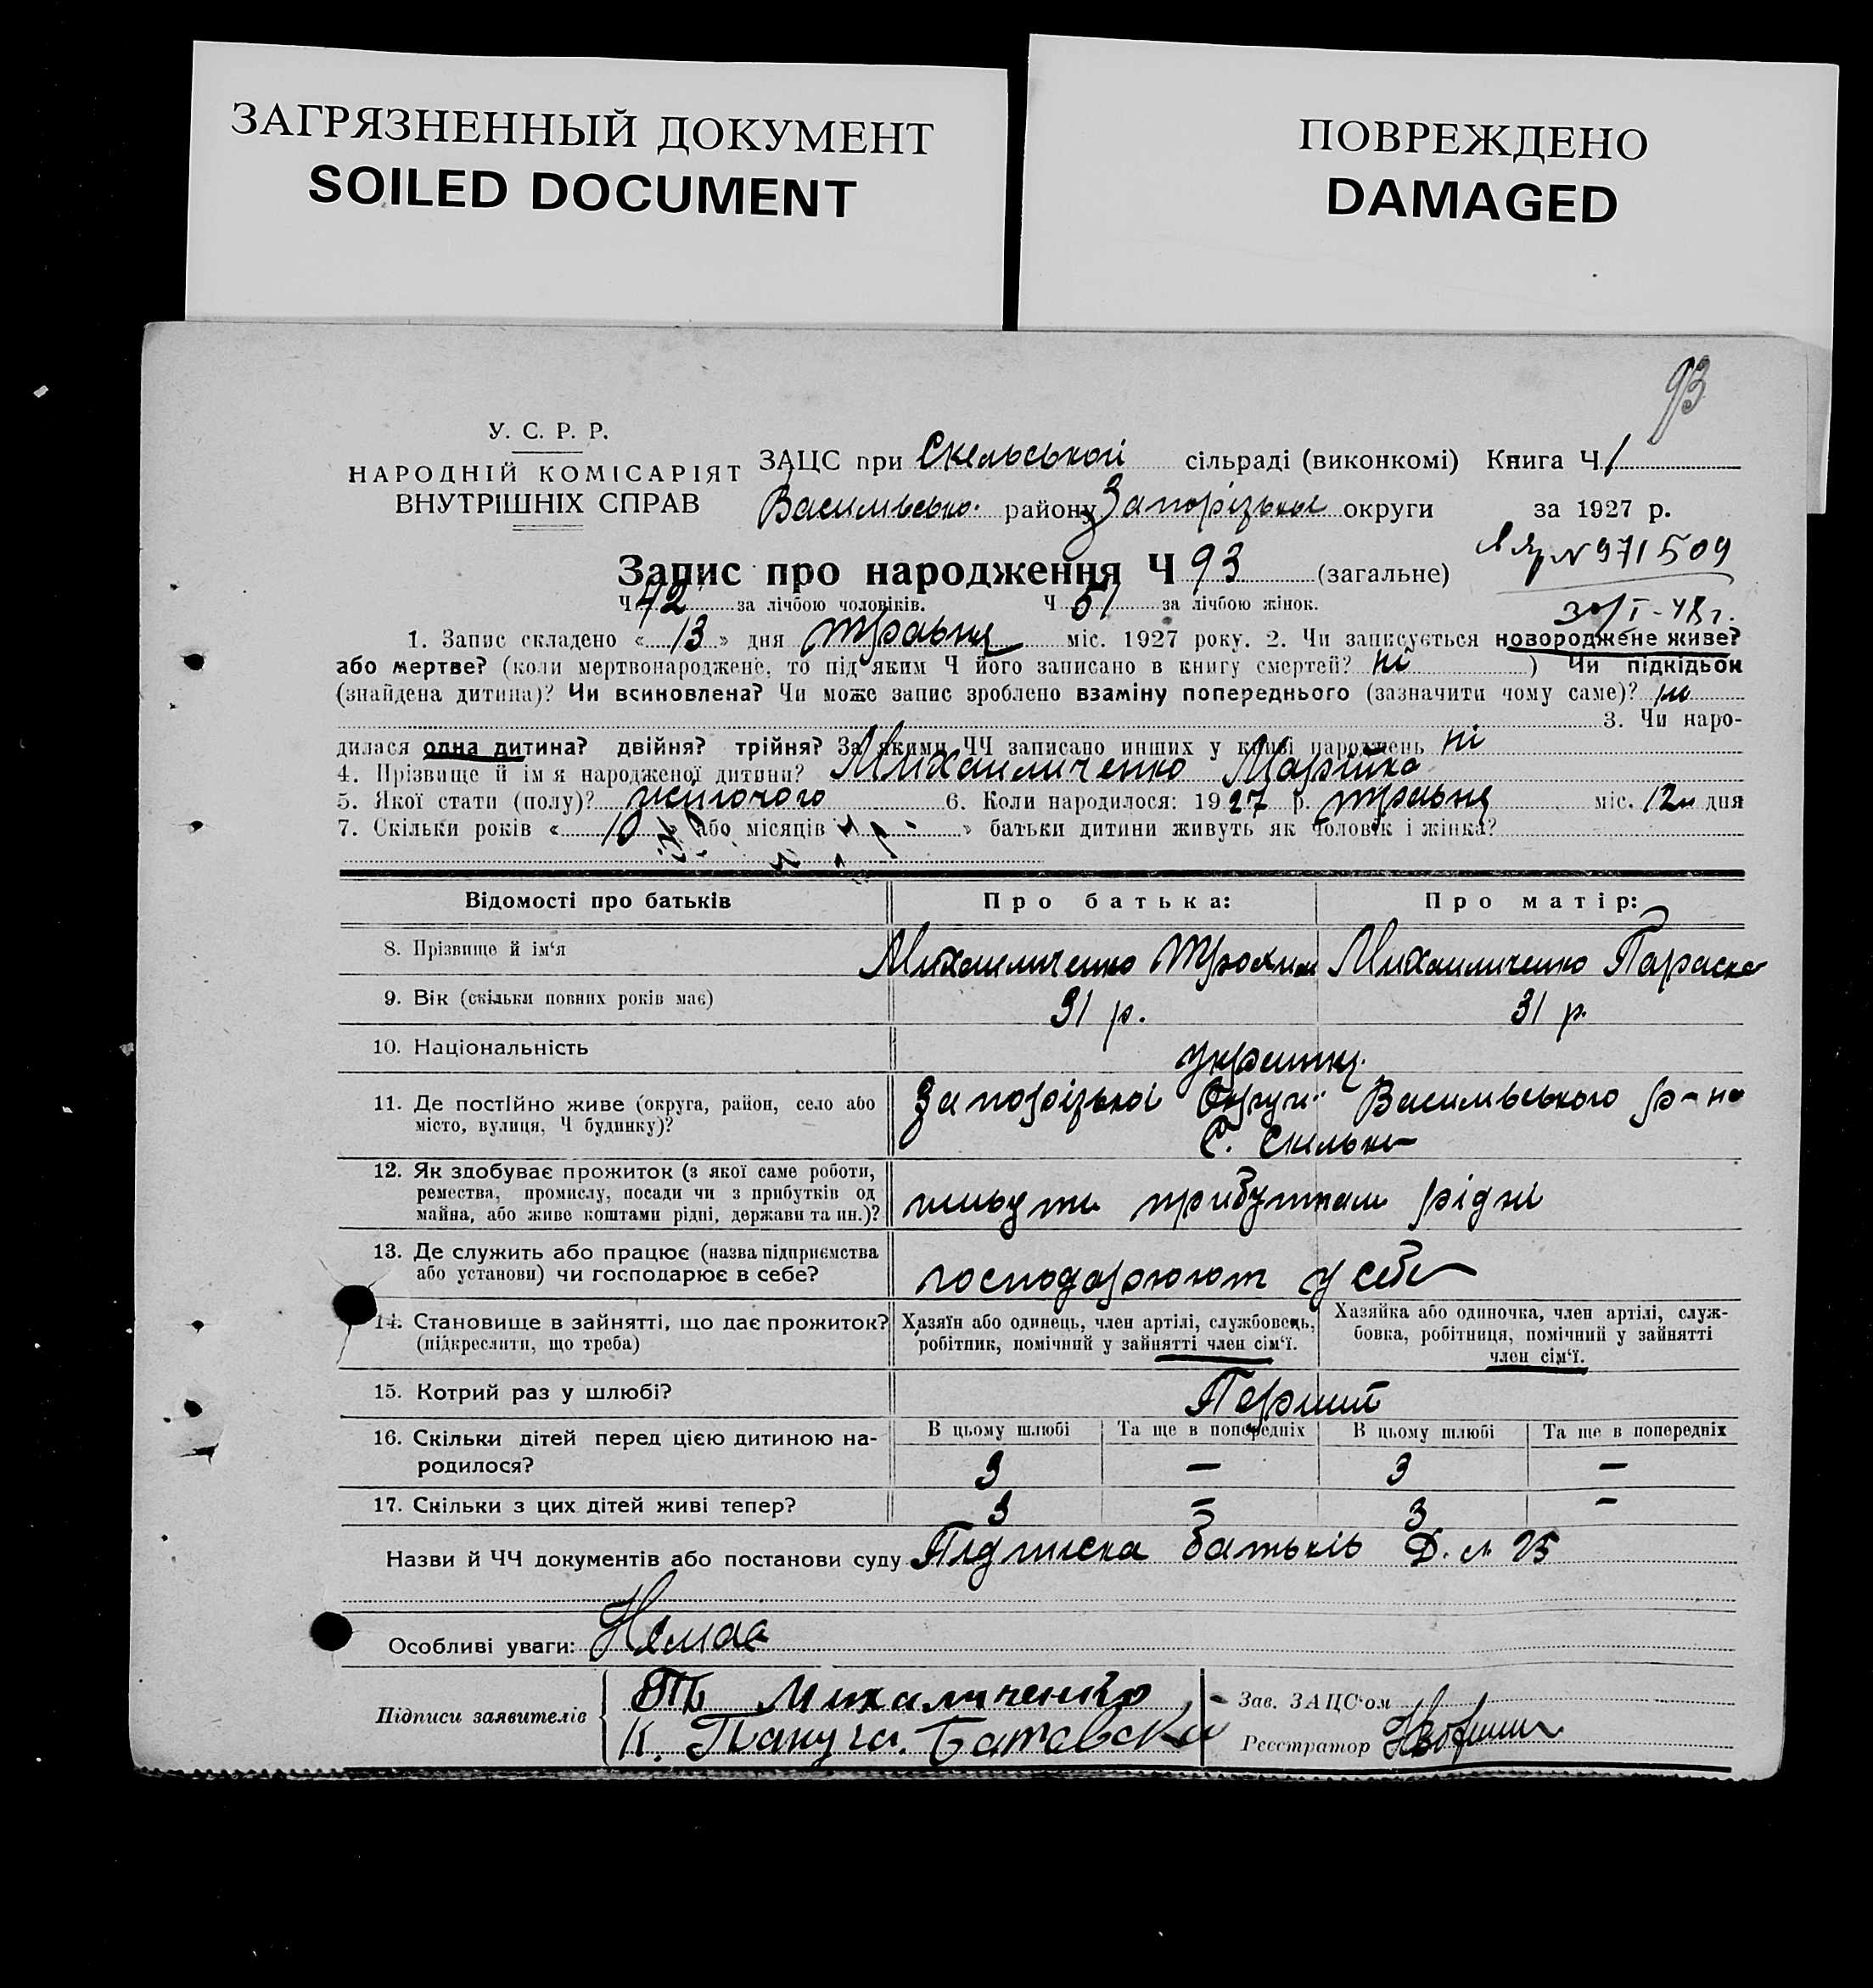 ЗАГРЯЗНЕННЫЙ ДОКУМЕНТ
SOILED DOCUMENT
ПОВРЕЖДЕНО
DAMAGED
93
У. С. Р. Р.
НАРОДНІЙ КОМІСАРІЯТ
ВНУТРІШНІХ СПРАВ
ЗАЦС при Скельській сільраді (виконкомі) Книга Ч 1
Васильвсько. району Запорізької округи за 1927 р.
N 971509
Запис про народження Ч 93 (загальне)
30/I-48 г.
Ч 42 за лічбою чоловіків. Ч 51 за лічбою жінок.
1. Запис складено « 13 » дня травня міс. 1927 року. 2. Чи записується новороджене живе?
або мертве? (коли мертвонароджене, то під яким Ч його записано в книгу смертей? ні ) Чи підкідьок
(знайдена дитина)? Чи всиновлена? Чи може запис зроблено взаміну попереднього (зазначити чому саме)? ні
3. Чи наро-
дилася одна дитина? двійня? трійня? За якими ЧЧ записано инших у книзі народжень ні
4. Прізвище й імʼя народженої дитини? Михайличенко Марійка
5. Якої стати (полу)? жиночого 6. Коли народилося: 1927 р. травня міс. 12 дня
7. Скільки років « 10 » або місяців « » батьки дитини живуть як чоловік і жінка?
Відомості про батьків
Про батька:
Про матір:
8. Прізвище й ім‘я
Михайличенко Трохим
Михайличенко Параска
9. Вік (скільки повних років має)
31 р.
31 р.
10. Національність
Україн.
11. Де постійно живе (округа, район, село або
місто, вулиця, Ч будинку)?
Запорізької Округи Васильвського р-на
С. Скельки
12. Як здобуває прожиток (з якої саме роботи,
ремества, промислу, посади чи з прибутків од
майна, або живе коштами рідні, держави та ин.)?
живуть прибутком рідні
13. Де служить або працює (назва підприємства
або установи) чи господарює в себе?
господарюют у себе
14. Становище в зайнятті, що дає прожиток?
(підкреслити, що треба)
Хазяїн або одинець, член артілі, службовець,
робітник, помічний у зайнятті член сім‘ї.
Хазяйка або одиночка, член артілі, служ-
бовка, робітниця, помічний у зайнятті
член сім‘ї.
15. Котрий раз у шлюбі?
Перший
16. Скільки дітей перед цією дитиною на-
родилося?
В цьому шлюбі
Та ще в попередніх
В цьому шлюбі
Та ще в попередніх
3 — 3 —
17. Скільки з цих дітей живі тепер?
3 — 3 —
Назви й ЧЧ документів або постанови суду Підписка батьків 25
Особливі уваги: Немає
Підписи заявителів
Михаличенко
К.
Зав. ЗАЦС‘ом
Реєстратор